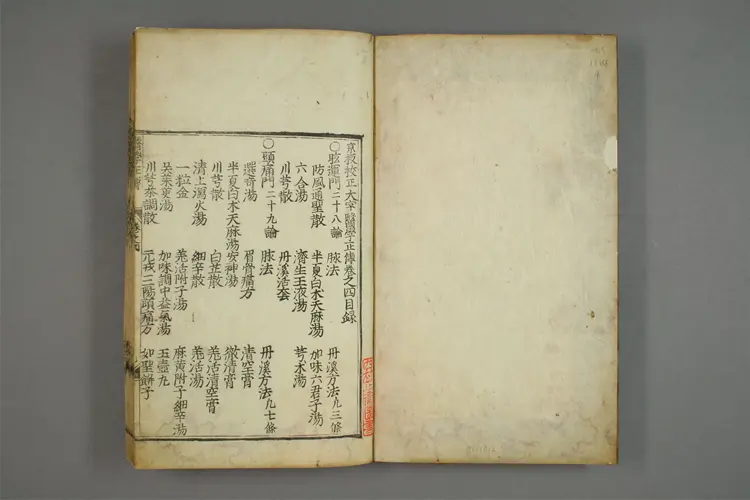 京板校正大字醫學正傳卷之四目録
○眩運門二十八論 脉法 丹溪方法九三條
防風通聖散 半夏白朮天麻湯 加味六君子湯
六合湯 濟生玉液湯 芎朮湯
川芎散 丹溪活套
○頭痛門二十九論 脉法 丹溪方法九七條
選奇湯 眉骨痛方 清空膏
半夏白木天麻湯 安神湯 徹清膏
川芎散 白芷散 羌活清空膏
清上瀉火湯 細辛散 羌活湯
一粒金 羌活附子湯 麻黄附子細辛湯
吳茱萸湯 加味調中益氣湯 玉壺丸
川芎茶調散 元戎三陽頭痛方 如聖餅子